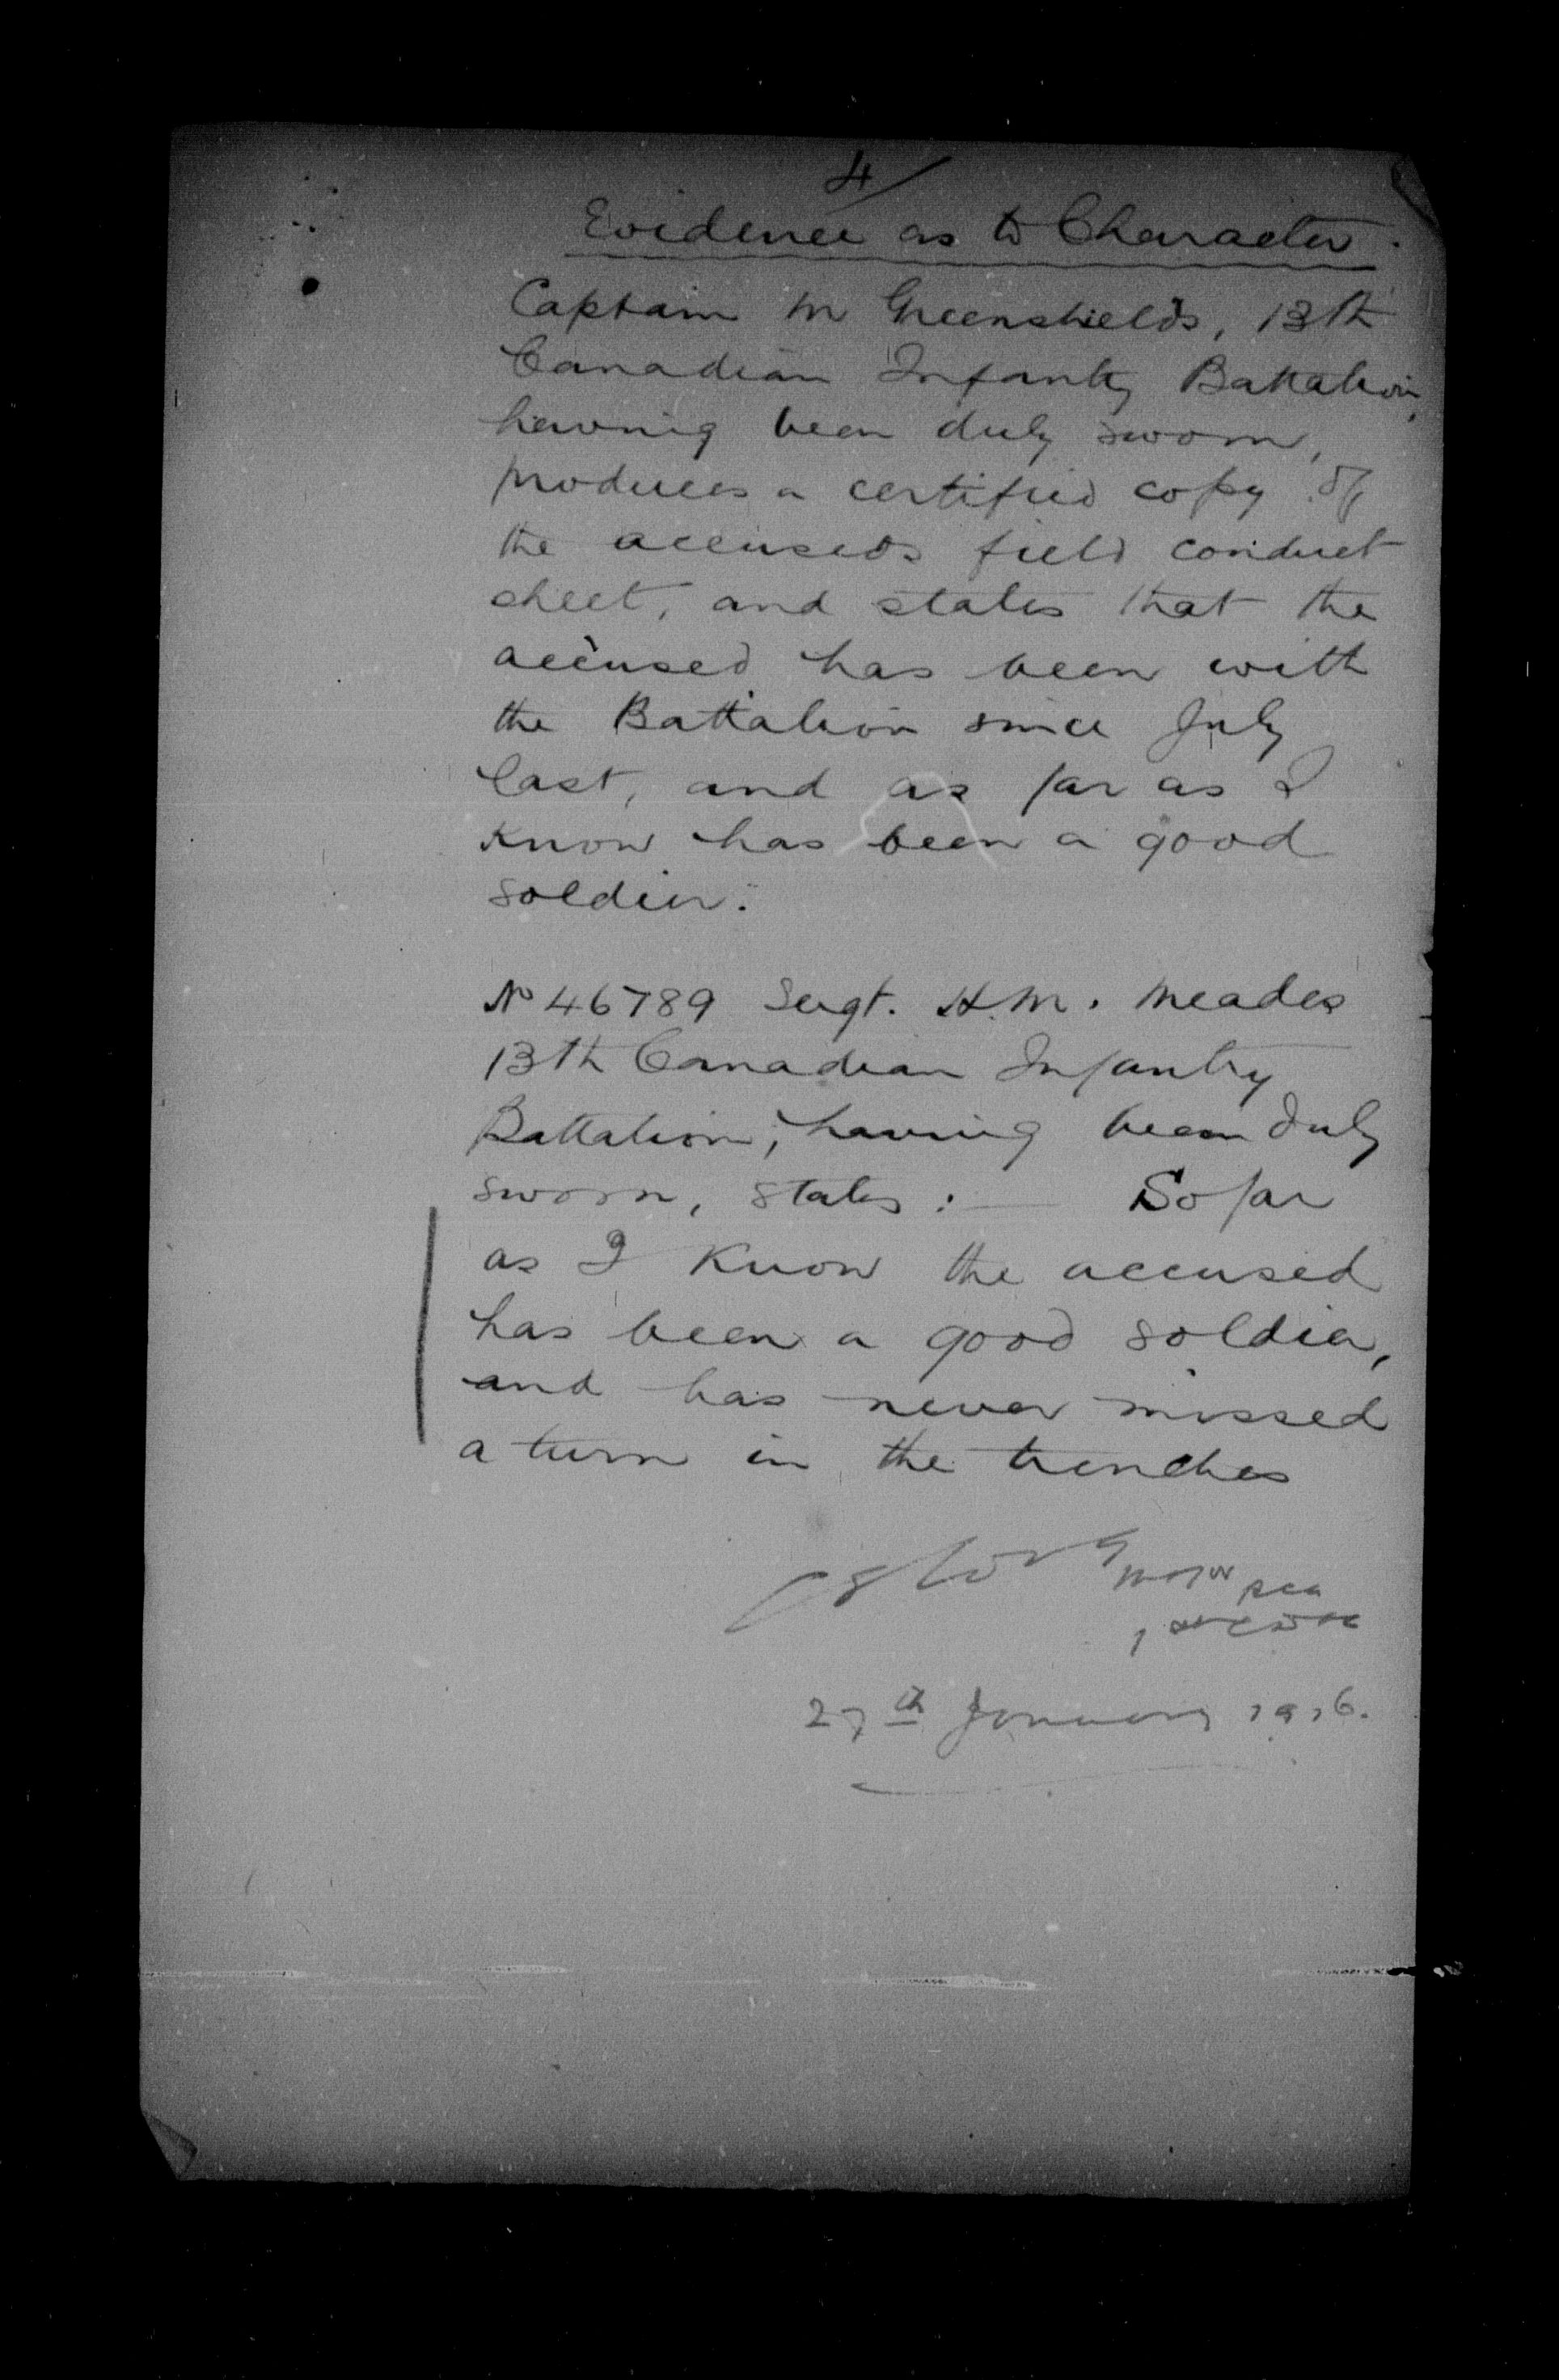 4/
Evidence as to Character.
Captain M Greenshields, 13th
Canadian Infantry Battalion,
having been duly sworn,
produces a certified copy of
the accuseds field conduct
sheet, and states that the
accused has been with
the Battalion since July
last, and as far as I
know has been a good
soldier.
No 46789 Sergt. H.M. Meades
13th Canadian Infantry
Battalion, having been duly
sworn, states :— So far
as I know the accused
has been a good soldier,
and has never missed
a turn in the trenches
Major
27th January 1916.